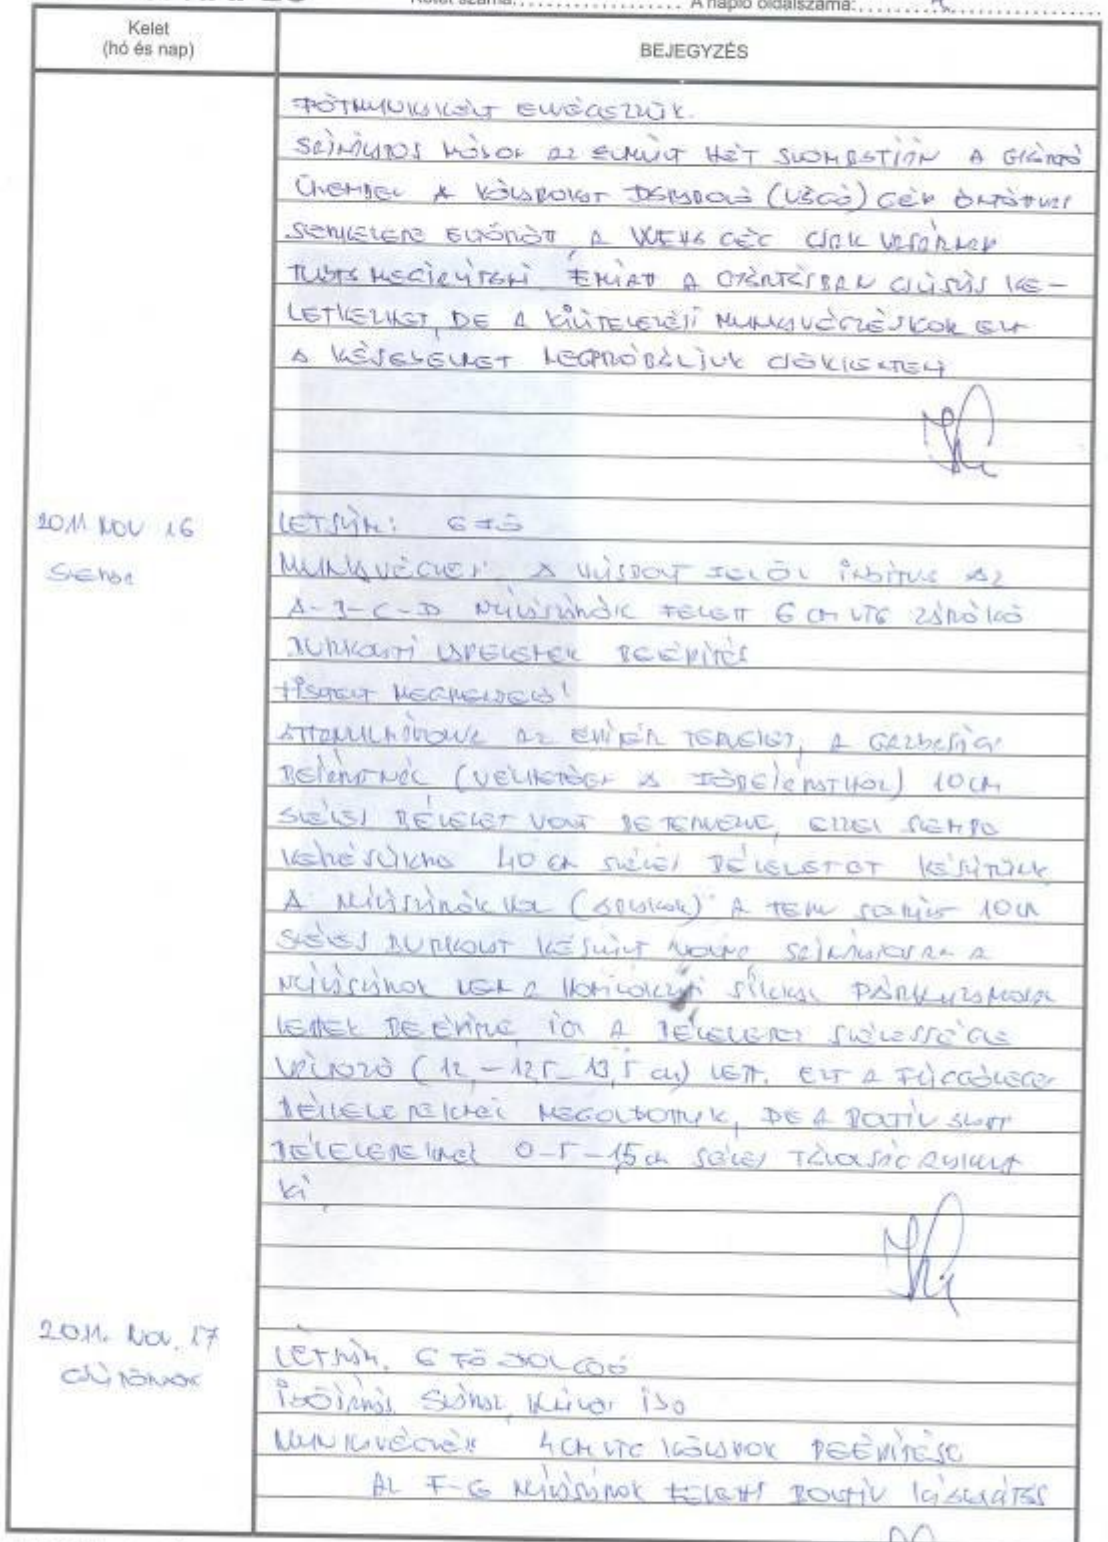 Kötet száma: A napló oldalszáma:
Kelet
(hó és nap)
BEJEGYZÉS
PÓTMUNKAKÉNT ELVÉGEZZÜK.
SAJNÁLATOS MÓDON AZ ELMÚLT HÉT SZOMBATJÁN A GYÁRTÓ
ÜZEMBEN A KŐLAPOKAT DARABOLÓ (VÁGÓ) GÉP
ELTÖRÖTT, A CÉG CSAK VASÁRNAP
TUDTA MEGJAVÍTANI. EMIATT A GYÁRTÁSBAN CSÚSZÁS KE-
LETKEZHET, DE A KIVITELEZÉSI MUNKAVÉGZÉSKOR EZT
A KÉSEDELMET MEGPRÓBÁLJUK CSÖKKENTENI
2011 NOV 16
SZERDA
LÉTSZÁM: 6 FŐ
MUNKAVÉGZÉS: A FELŐL INDÍTVA AZ
A-B-C-D NYÍLÁSZÁRÓK FELETT 6 CM VTG ZÁRÓKŐ
BURKOLATI BEÉPÍTÉS
TISZTELT MEGRENDELŐ!
ÁTTANULMÁNYOZVA AZ TERVEKET, A GAZDASÁGI
BEJÁRATNÁL (VÉLHETŐEN A FŐBEJÁRATNÁL) 10 CM
SZÉLES BÉLELET VOLT BETERVEZVE, EZZEL SZEMBEN
KÉRÉSÜKRE 40 CM SZÉLES BÉLELETET KÉSZÍTÜNK
A NYÍLÁSZÁRÓKNÁL (ABLAKOK) A TERV SZERINT 10 CM
SZÉLES BURKOLAT KÉSZÜLT VOLNA SAJNÁLATOSAN A
NYÍLÁSZÁRÓK NEM A HOMLOKZATI SÍKKAL PÁRHUZAMOSAN
LETTEK BEÉPÍTVE, ÍGY A BÉLELETEK SZÉLESSÉGE
VÁLTOZÓ (12,-12,5-13,5 CM) LETT. EZT A FÜGGŐLEGES
BÉLELETEKNÉL MEGOLDOTTUK, DE A
BÉLELETEKNÉL 0-5-15 CM SZÉLES TÁVOLSÁG ALAKULT
KI
2011. NOV. 17
CSÜTÖRTÖK
LÉTSZÁM: 6 FŐ DOLGOZÓ
IDŐJÁRÁS: SZÁRAZ, IDŐ
MUNKAVÉGZÉS: 4 CM VTG KŐLAPOK BEÉPÍTÉSE
AZ F-G NYÍLÁSZÁRÓK FELETTI